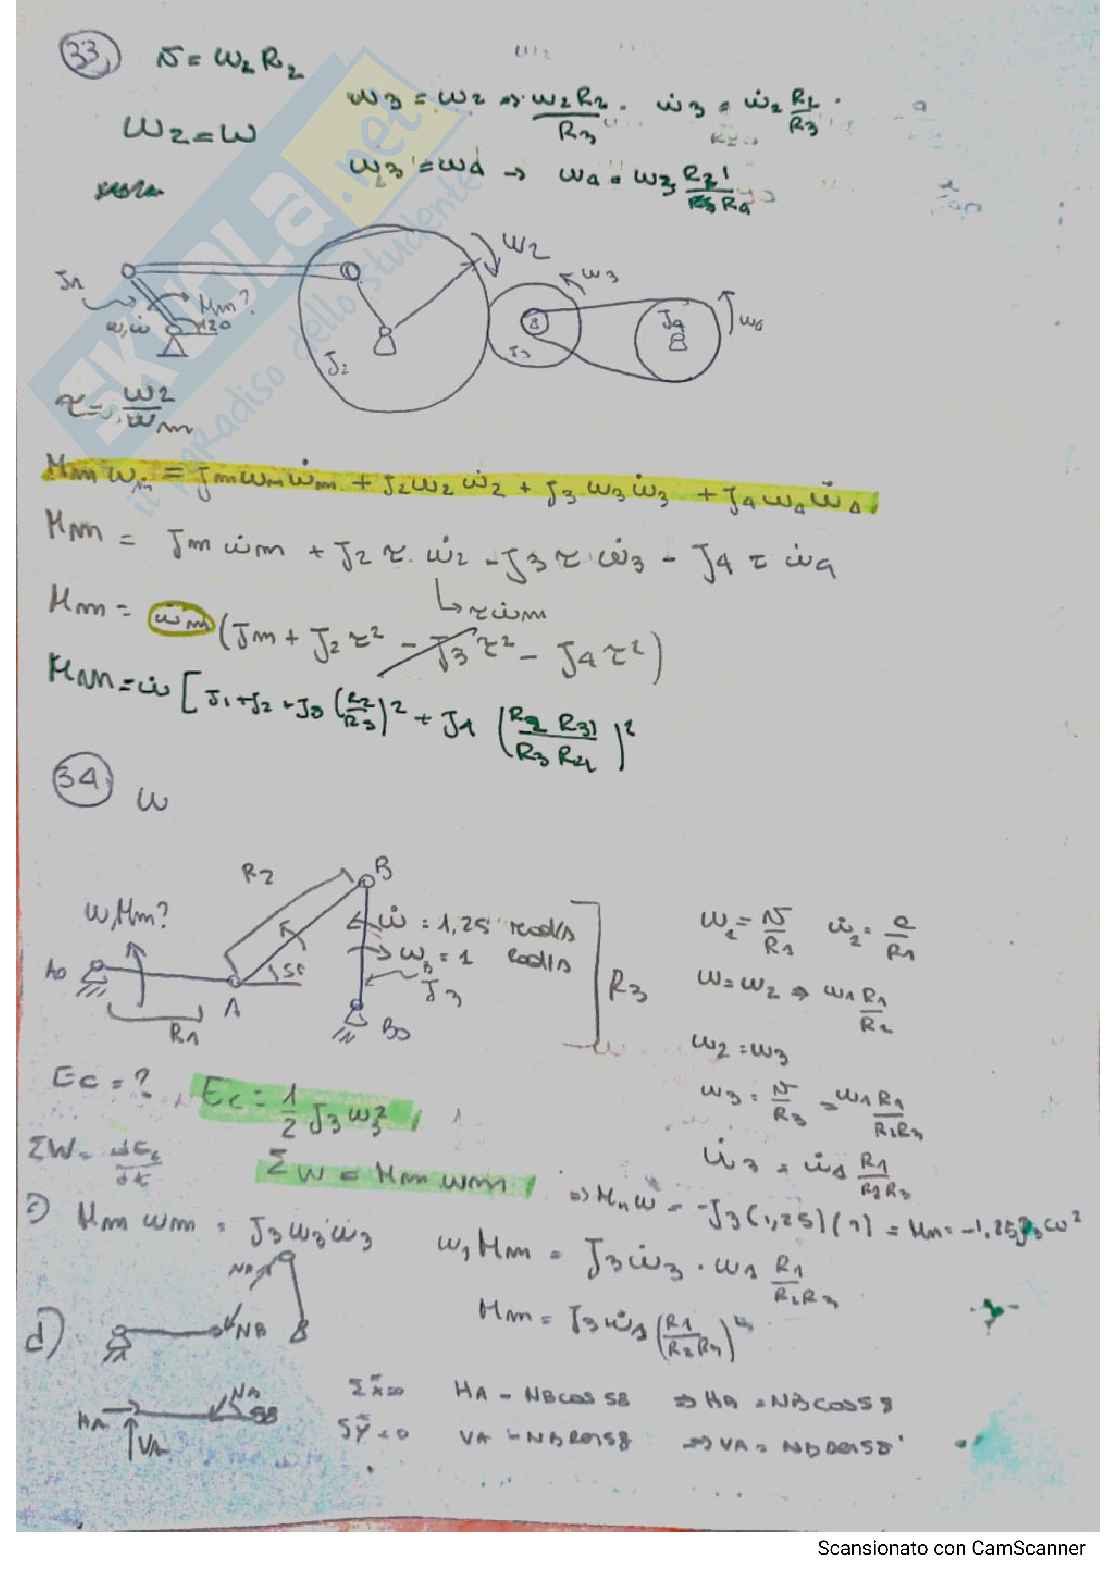 33)
v = ω₂R₂
ω₂ = ω
ω3 = ω2 ⇒ ω2R2/R3 . ω̇3 = ω̇2 R2/R3 .
ω3 = ω4 → ω4 = ω3 R3'/R4
J1
ω, ω̇
Mm?
120
J2
ω2
ω3
J3
J4
ω4
τ = ω2/ωm
Mm ωm = Jm ωm ω̇m + J2 ω2 ω̇2 + J3 ω3 ω̇3 + J4 ω4 ω̇4
Mm = Jm ω̇m + J2 τ · ω̇2 - J3 τ · ω̇3 - J4 τ ω̇4
↳ τ ω̇m
Mm = ω̇m (Jm + J2 τ² - J3 τ² - J4 τ²)
Mm = ω̇ [J1 + J2 + J3 (R2/R3)² + J4 (R2 R31/R3 R4)²
34
ω
R2
B
ω, Mm?
ω̇ = 1,25 rad/s
ω3 = 1 rad/s
A0
A
58
J3
B0
R1
R3
ω2 = v/R1 ω̇2 = a/R1
ω = ω2 ⇒ ω1 R1/R2
ω2 = ω3
ω3 = v/R3 = ω1 R1/R2R3
ω̇3 = ω̇1 R1/R2R3
Ec = ? Ec = 1/2 J3 ω3²
ΣW = dEc/dt
ΣW = Mm ωm
⇒ Mm ω = -J3 (1,25)(1) = Mm = -1,25 J3 ω²
c) Mm ωm = J3 ω3 ω̇3
ω1 Mm = J3 ω̇3 · ω1 R1/R2R3
Mm = J3 ω̇1 (R1/R2R3)²
d)
NB
NB
HA
VA
58
Σx=0 HA - NB cos 58 ⇒ HA = NB cos 58
Σy=0 VA - NB sen 58 ⇒ VA = NB sen 58
SKUOLA.net
il paradiso dello studente
Scansionato con CamScanner